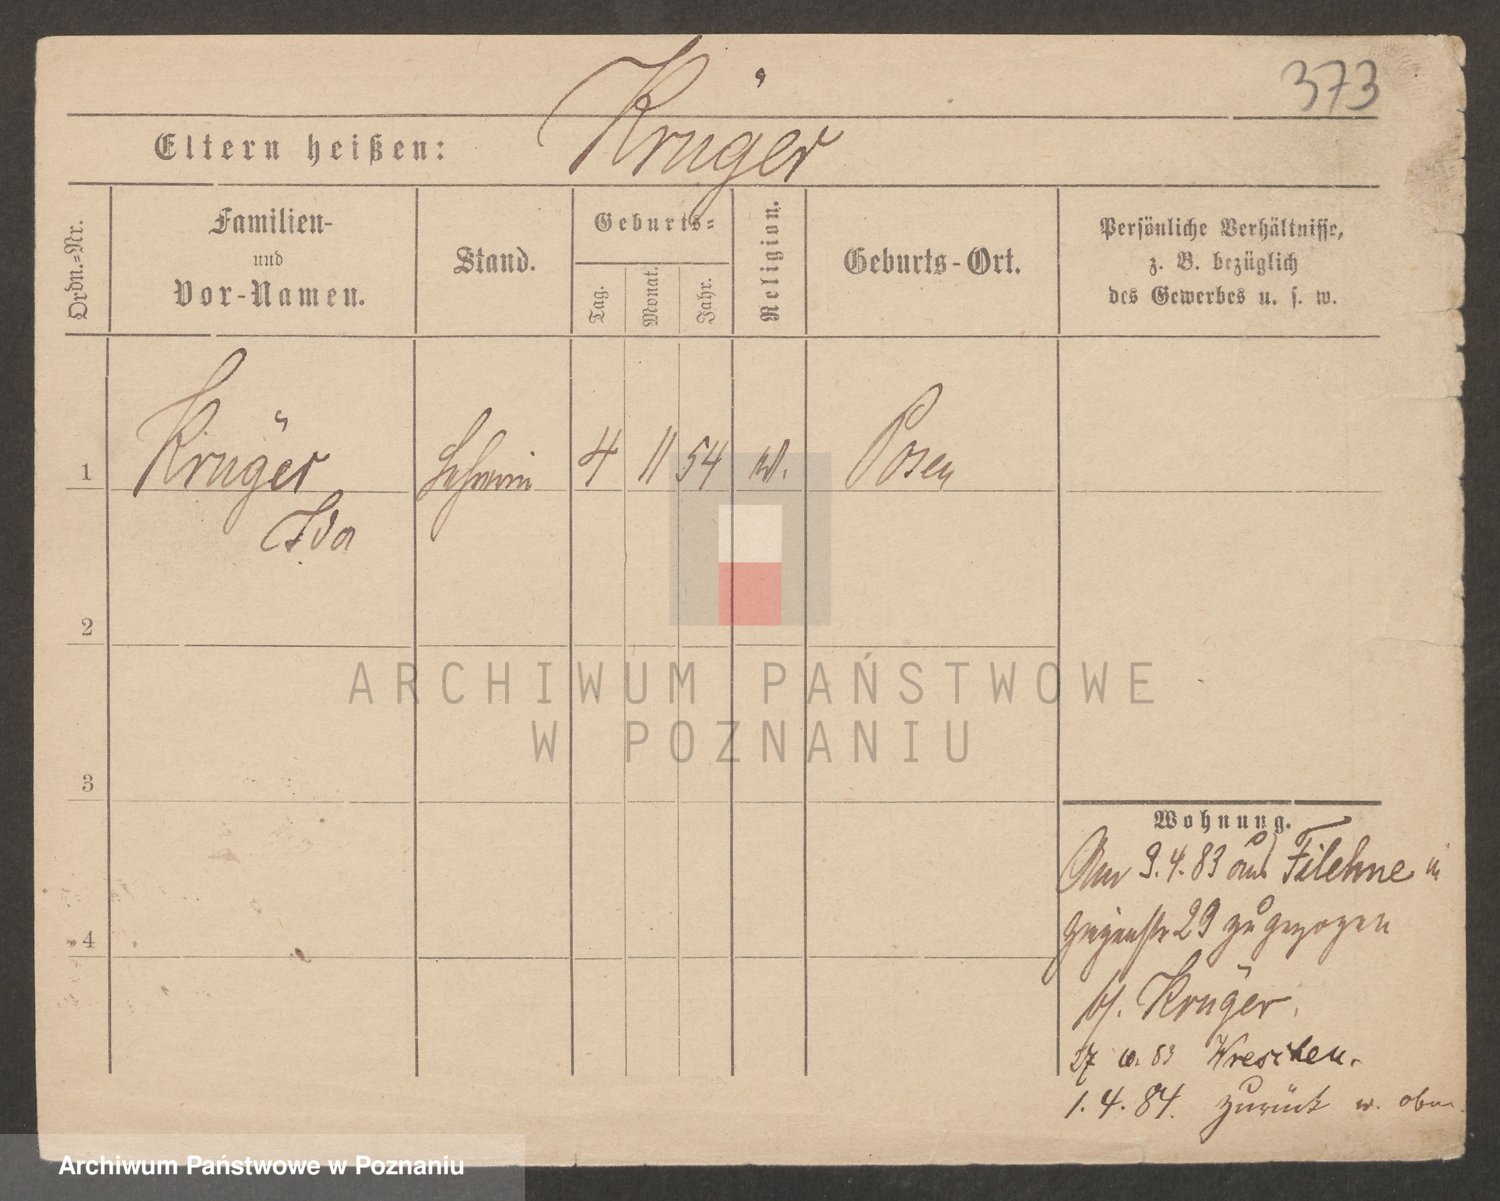 373
Krüger
Eltern heißen:
Ordn.=Nr.
Familien-
und
Vor-Namen.
Stand.
Geburts=
Tag.
Monat.
Jahr.
Religion.
Geburts-Ort.
Persönliche Verhältnisse,
z. B. bezüglich
des Gewerbes u. s. w.
1
Krüger
Ida
4 11 54
Posen
2
3
4
ARCHIWUM PAŃSTWOWE
W POZNANIU
Wohnung.
Am 9.4.83 aus Filehne in
29 zugezogen
b/. Krüger.
27 83 Wreschen.
1.4.84. zurück w. oben
Archiwum Państwowe w Poznaniu